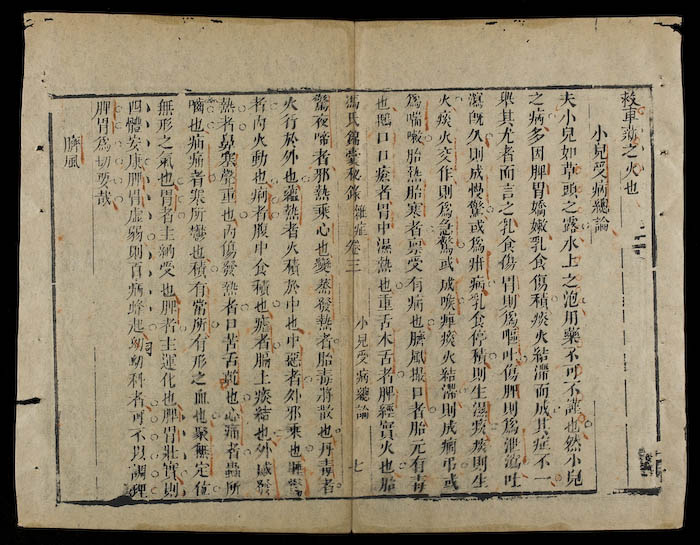 救車薪之火也
小兒受病總論
夫小兒如草頭之露水上之泡用藥不可不謹也然小兒
之病多因脾胃嬌嫩乳食傷積痰火結滯而成其症不一
舉其尤者而言之乳食傷胃則為嘔吐傷脾則為泄瀉吐
瀉旣久則成慢驚或為疳病乳食停積則生濕痰痰則生
火痰火交作則為急驚或成喉痺痰火結滯則成癇弔或
為喘嗽胎熱胎寒者禀受有病也臍風撮口者胎元有毒
也鵝口口瘡者胃中濕熱也重舌木舌者脾經實火也胎
馮氏錦囊秘錄 雜症卷三 小兒受病總論 七
驚夜啼者邪熱乘心也變蒸發熱者胎毒將散也丹毒者
火行於外也蘊熱者火積於中也中惡者外邪乘也睡驚
者內火動也痢者腹中食積也瘧者膈上痰結也外感發
熱者鼻塞聲重也內傷發熱者口苦舌乾也心痛者蟲所
嚙也疝痛者寒所鬱也積有常所有形之血也聚無定位
無形之氣也胃者主納受也脾者主運化也脾胃壯實則
四體安康脾胃虛弱則百病蜂起幼幼科者可不以調理
脾胃為切要哉
臍風